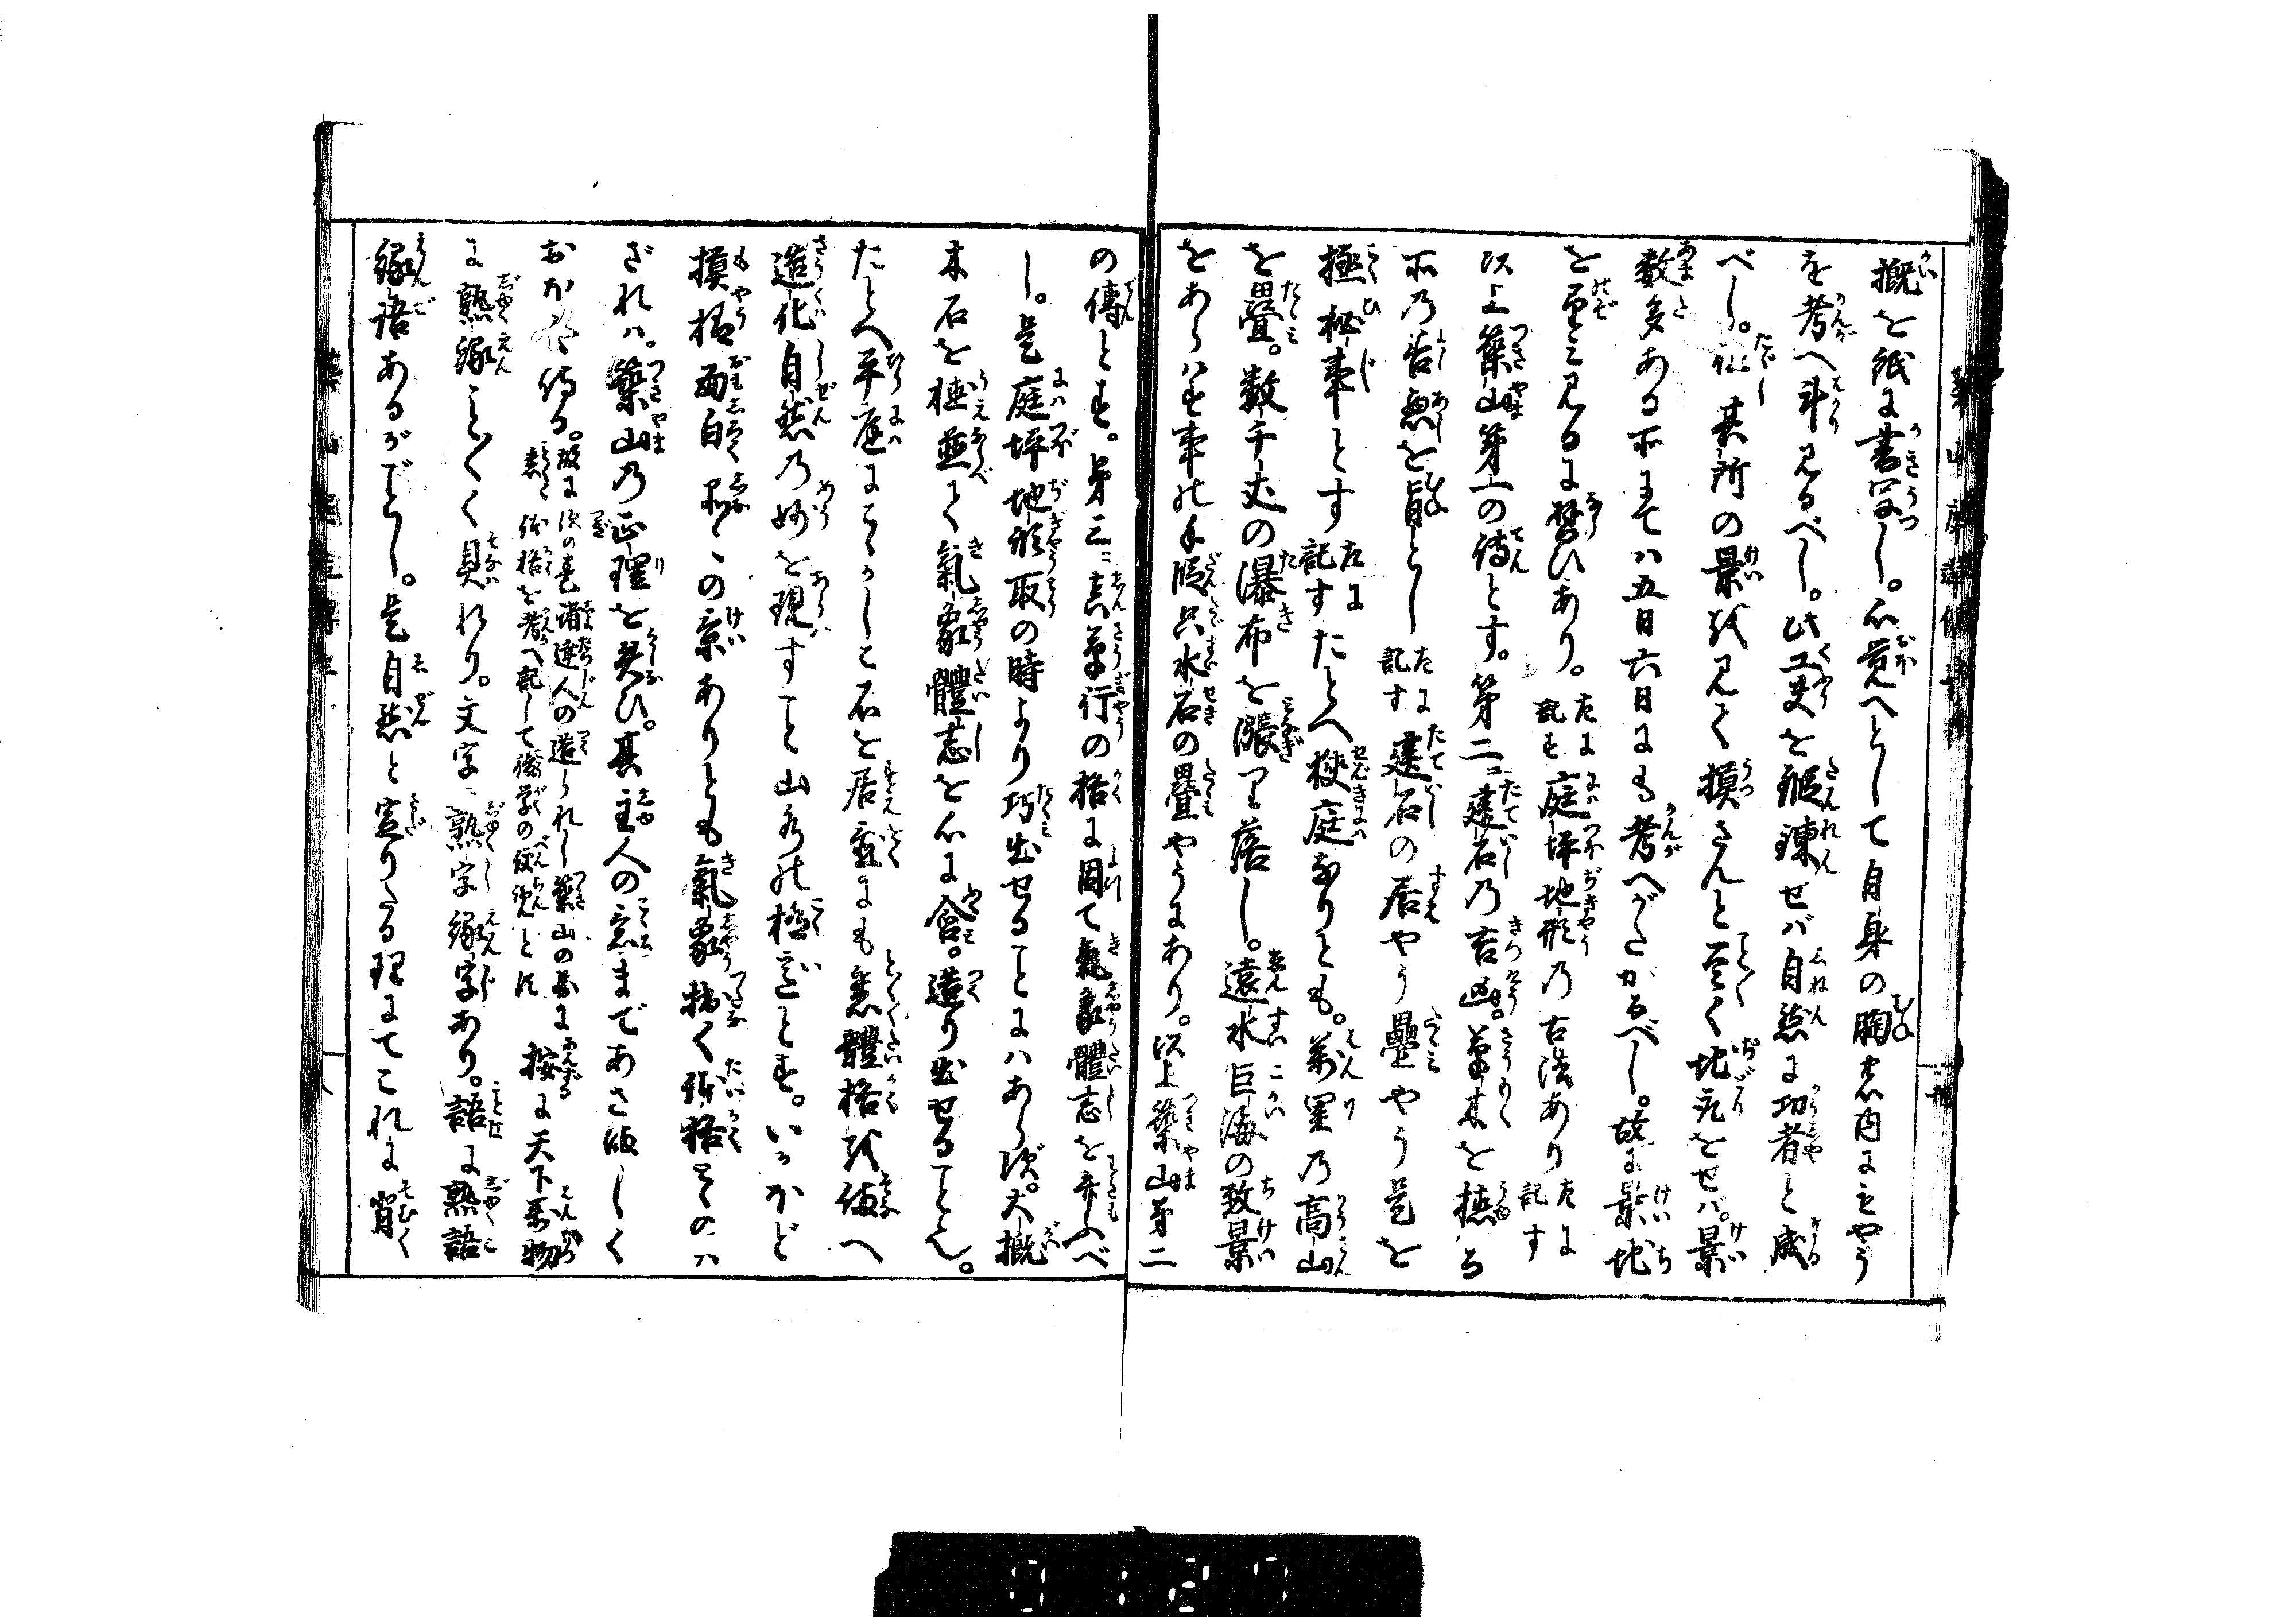 概を紙に書写し。心覚へとして自身の胸志内にもやう
を考へ斗見るべし。此工夫を鍛錬せバ自然に功者と成
べし。但其所の景を見て摸さんと尽く地取をせバ。景
数多ある所にてハ五日六日にも考へがたかるべし。故に景地
を望み見るに習ひあり。左に記す庭坪地形乃古法あり左に記す
以上築山第一の傳とす。第二ニ建石乃吉凶。草木を植る
所乃善悪を旨とし左に記す建石の居やう疊やう是を
極秘事とす左に記すたとへ狭庭なりとも。萬里乃高山
を疊。数千丈の瀑布を漲り落し。遠水巨海の致景
をあらハす事の手段只水石の疊やうにあり。以上築山第二
の傳とす。第三ニ真草行の格に因て氣象體志を弁ふべ
し。是庭坪地形取の時より巧出せることにハあらず。大概
木石を植並て氣象體志を心に含。造り出せること也。
たとへ平庭にもかしこ石を居並にも悉體格を備へ
造化自然乃妙を現すこと山水の極意とす。いかなど
摸様面白く品々の景ありとも氣象拙く体格そのハ
ざれハ。築山乃正理を失ひ。其主人の意まであさましく
おかれ侍る。故に次の巻諸達人の造られし築山の図に悉く体格を考へ記して後学の便覧とす 按に天下萬物
に熟縁ことごとく具れり。文字ニ熟字縁字あり。語に熟語
縁語あるがごとし。是自然と定りたる理にてこれに背く